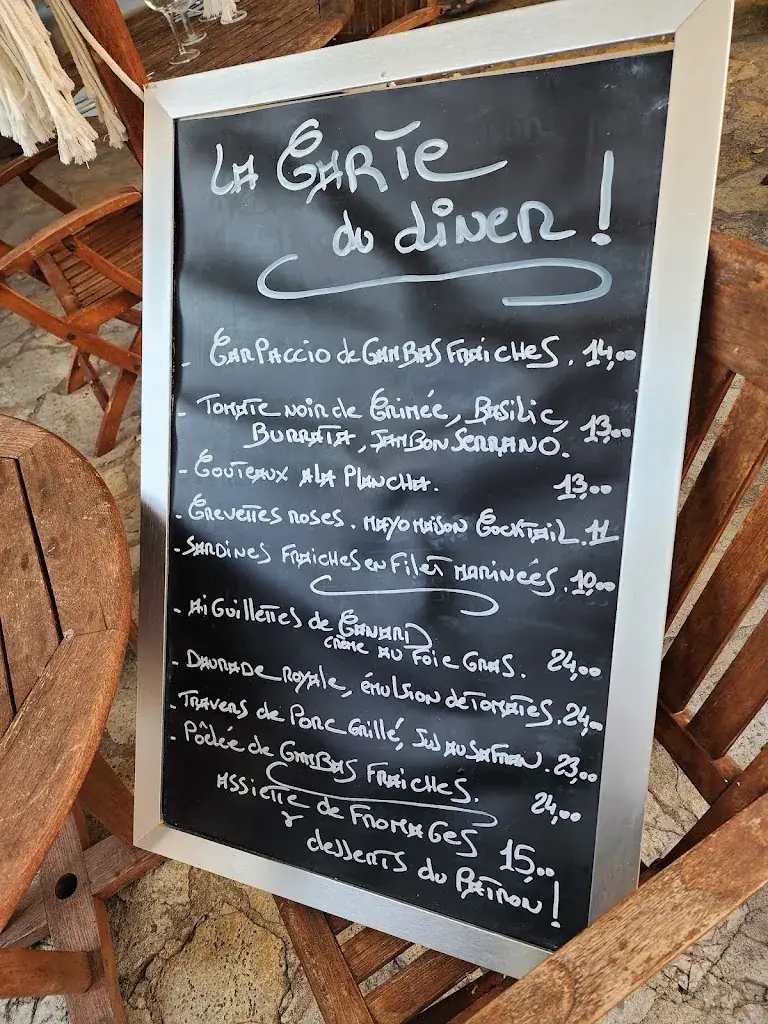 La Carte
du dîner !
- Carpaccio de Gambas Fraîches. 14,00
- Tomate noir de Crimée, Basilic,
Burrata, Jambon Serrano. 13,00
- Couteaux a la Plancha. 13,00
- Crevettes roses. mayo maison Cocktail. 11
- Sardines Fraîches en Filet marinées. 10,00
- Aiguillettes de Canard
crème au Foie Gras. 24,00
- Daurade Royale, émulsion de Tomates. 24,00
- Travers de Porc Grillé, Jus au Safran. 23,00
- Poêlée de Gambas Fraîches. 24,00
Assiette de Fromages 15,00
& desserts du Patron !